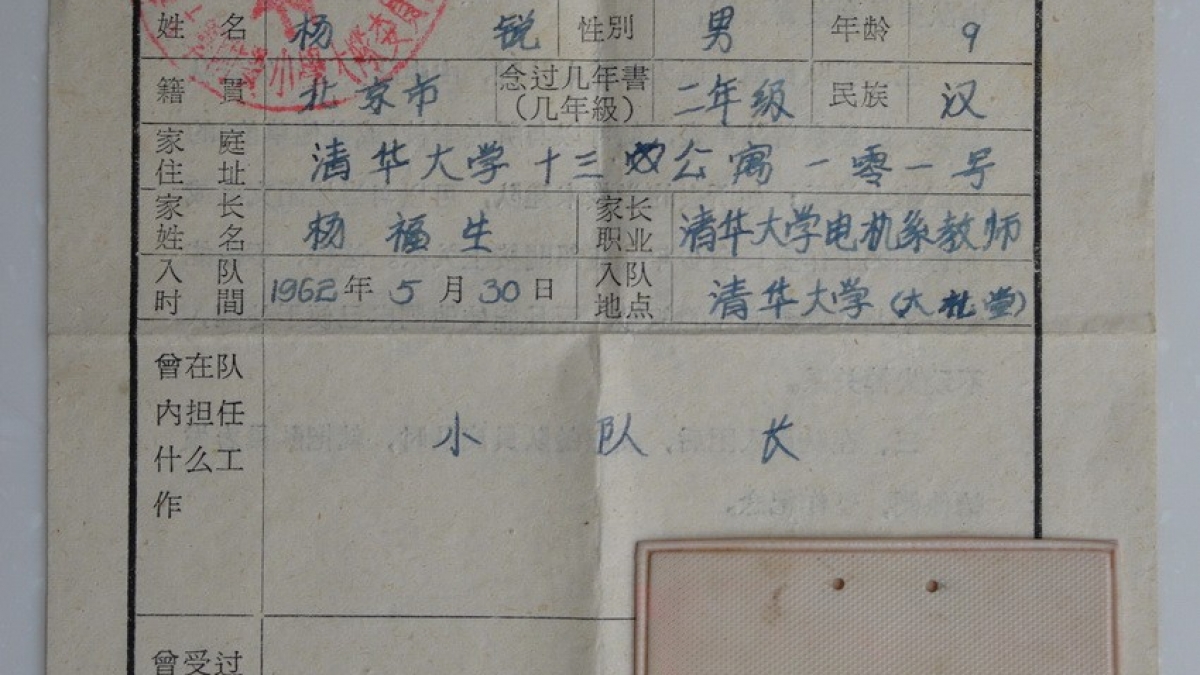 姓 名 杨 锐 性别 男 年龄 9
籍 貫 北京市 念过几年書(几年級) 二年级 民族 汉
家庭住址 清华大学十三公寓一零一号
家长姓名 杨福生 家长职业 清华大学电机系教师
入队时間 1962年5月30日 入队地点 清华大学(大礼堂)
曾在队
内担任 小队长
什么工
作
曾受过